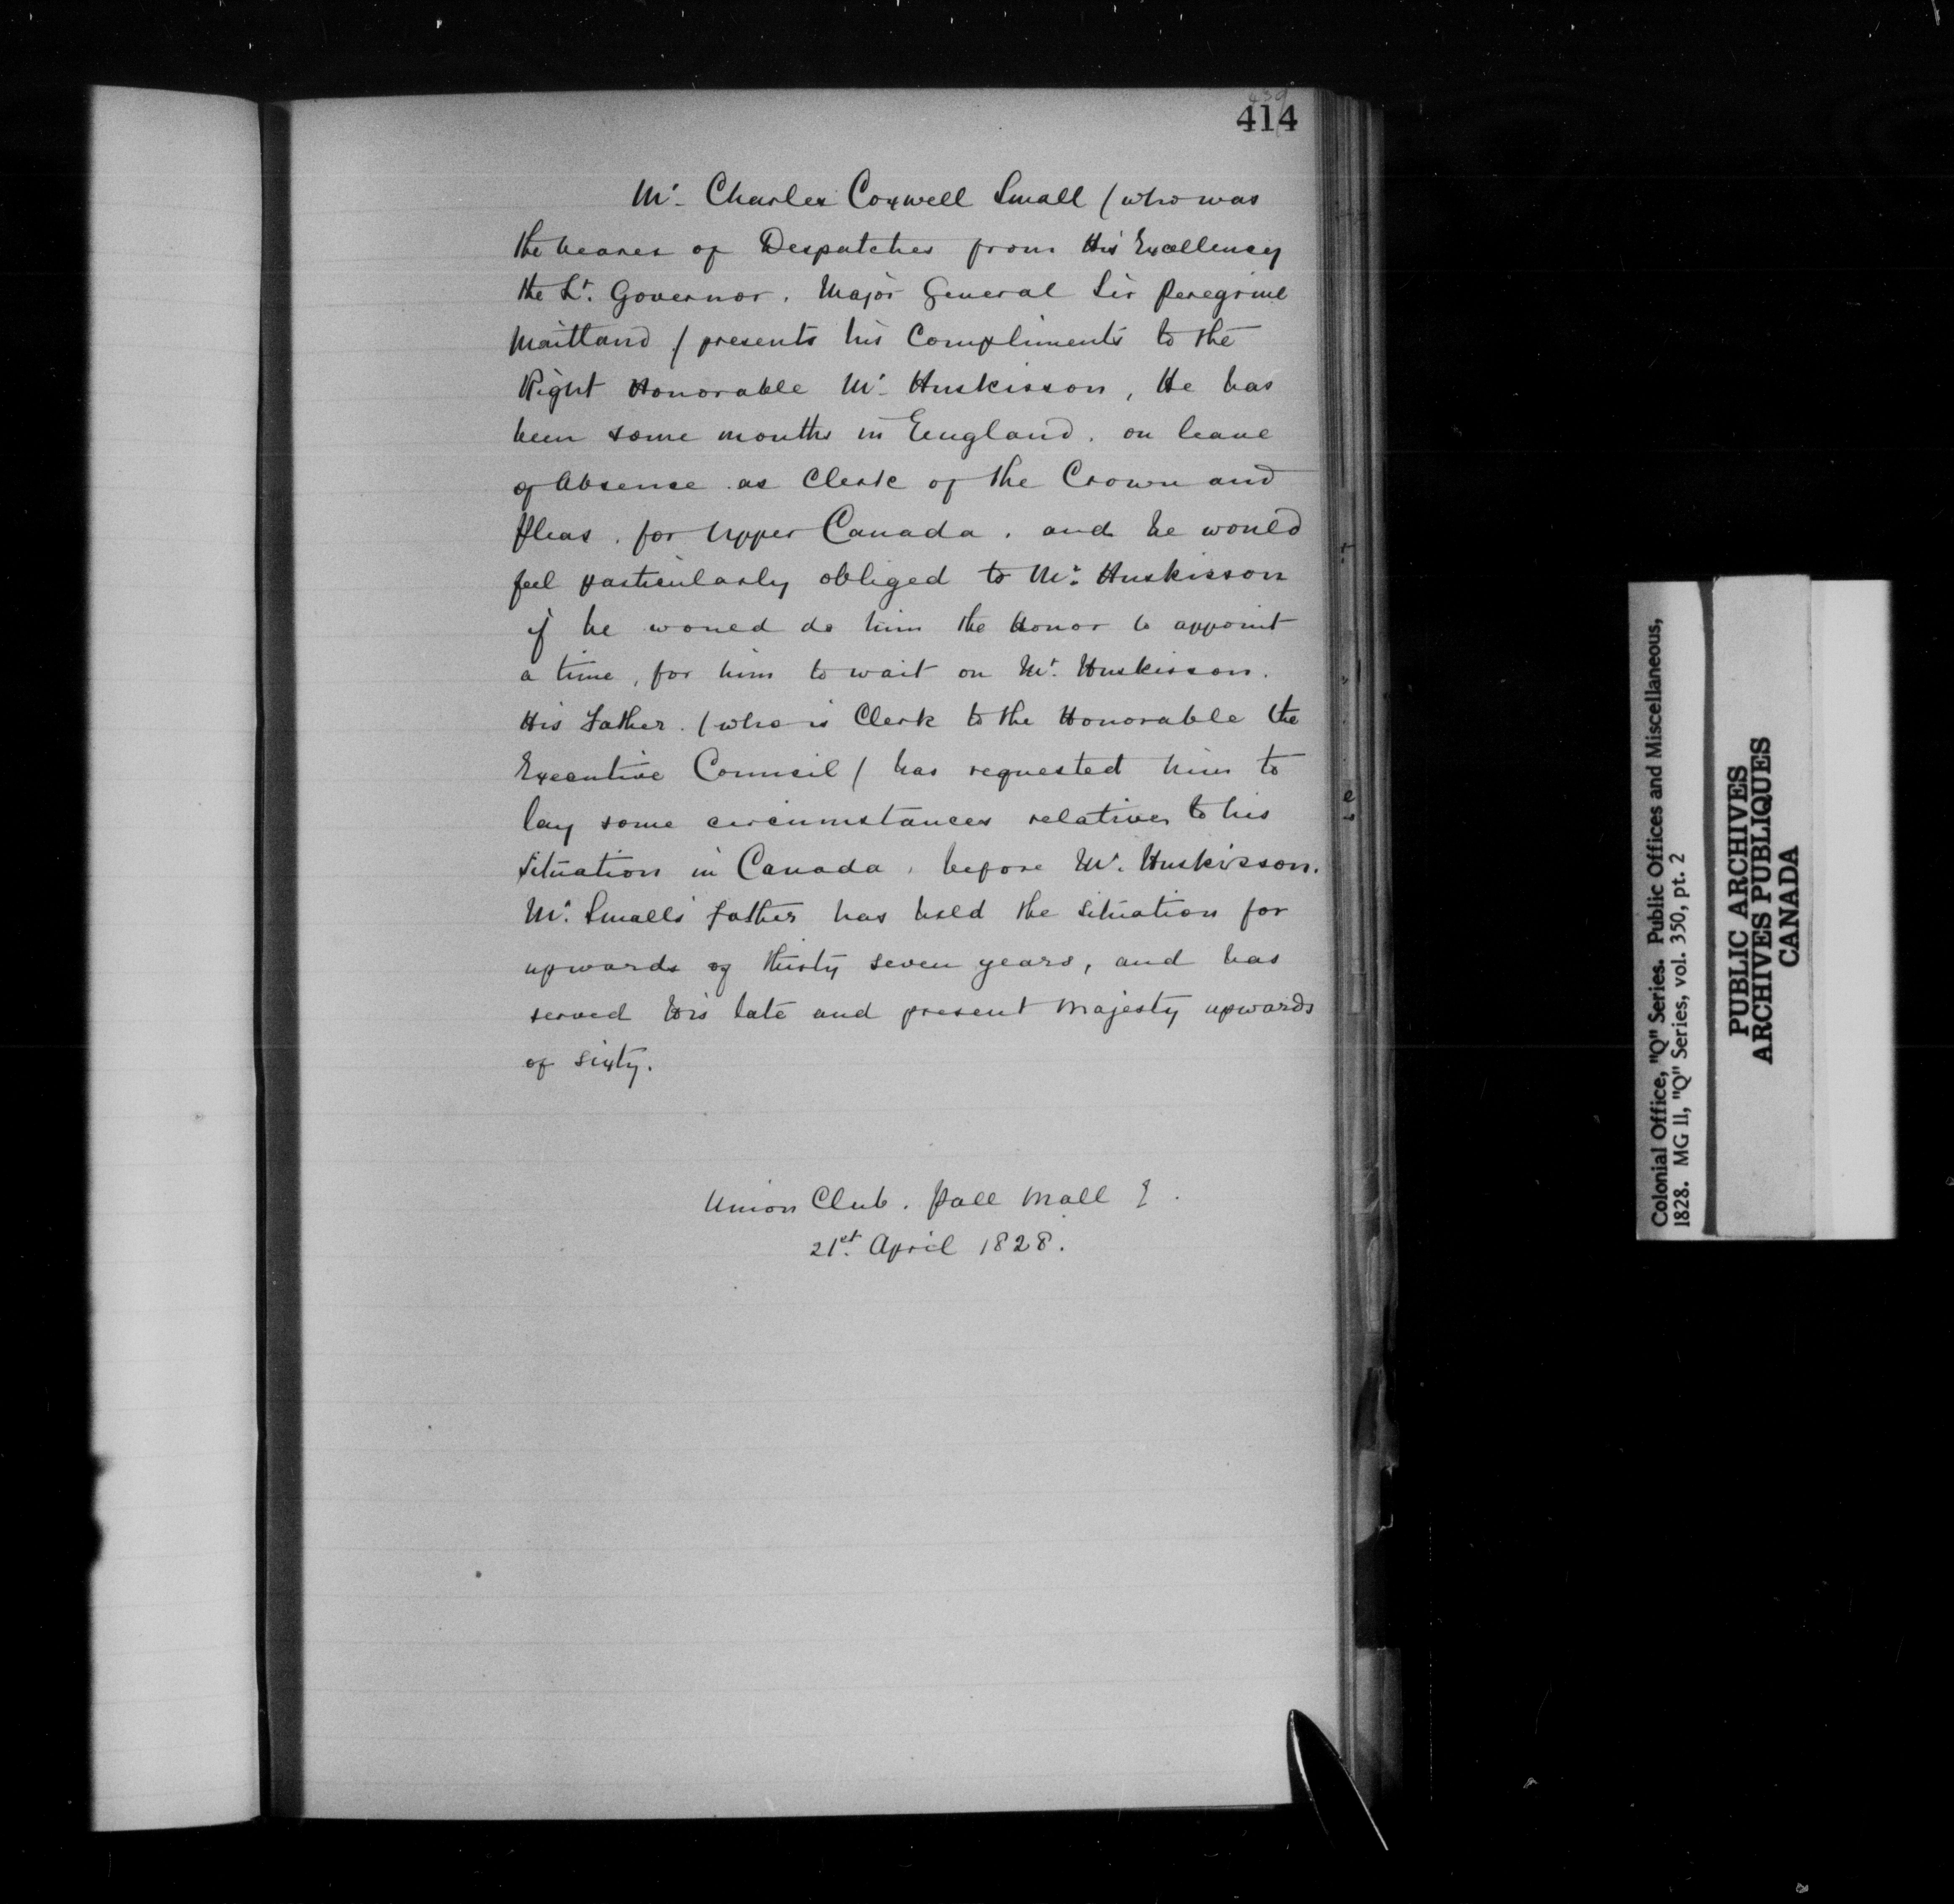 414
Mr. Charles Coxwell Small (who was
the bearer of Despatches from His Excellency
the Lt. Governor, Major General Sir Peregrine
Maitland) presents his Compliments to the
Right Honorable Mr. Huskisson, He has
been some months in England, on leave
of Absence as Clerk of the Crown and
Pleas, for Upper Canada, and he would
feel particularly obliged to Mr. Huskisson
if he would do him the Honor to appoint
a time, for him to wait on Mr. Huskisson.
His Father (who is Clerk to the Honorable the
Executive Council) has requested him to
lay some circumstances relative to his
Situation in Canada, before Mr. Huskisson.
Mr. Smalls father has held the Situation for
upwards of thirty seven years, and has
served His late and present Majesty upwards
of sixty.
Union Club. Pall Mall
21st. April 1828.
Colonial Office, "Q" Series. Public Offices and Miscellaneous,
1828. MG 11, "Q" Series, vol. 350, pt. 2
PUBLIC ARCHIVES
ARCHIVES PUBLIQUES
CANADA